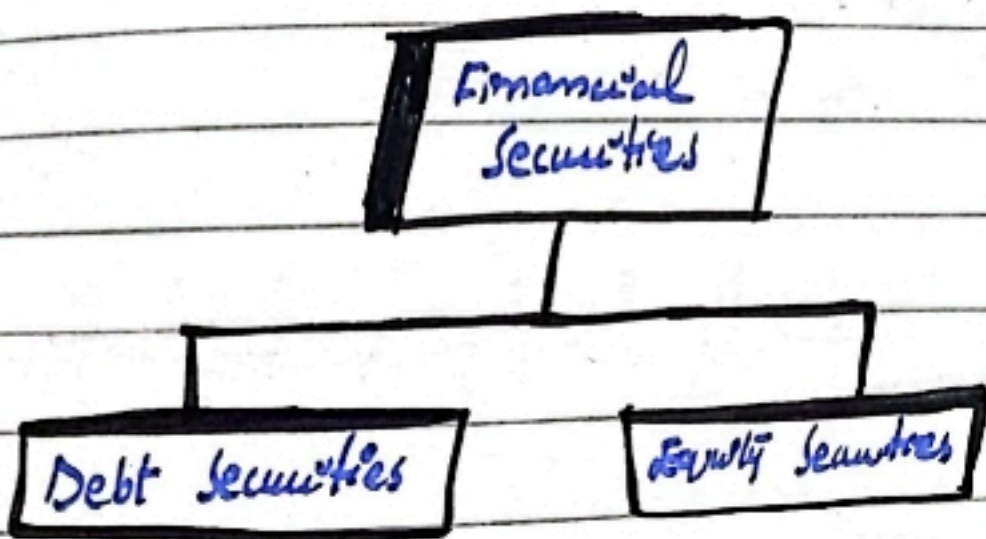 Financial
Securities
Debt Securities
Equity Securities